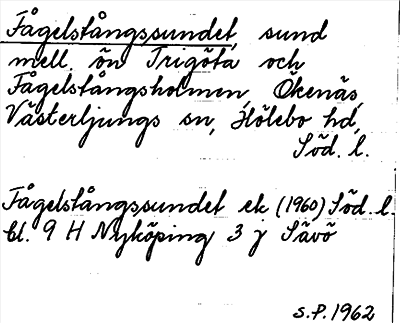 Fågelstångssundet, sund
mell. ön Trigöta och
Fågelstångsholmen, Ökenäs,
Västerljungs sn, Hölebo hd,
Söd. l.
Fågelstångssundet ek (1960) Söd. l.
bl. 9 H Nyköping 3 j Sävö
S.P. 1962